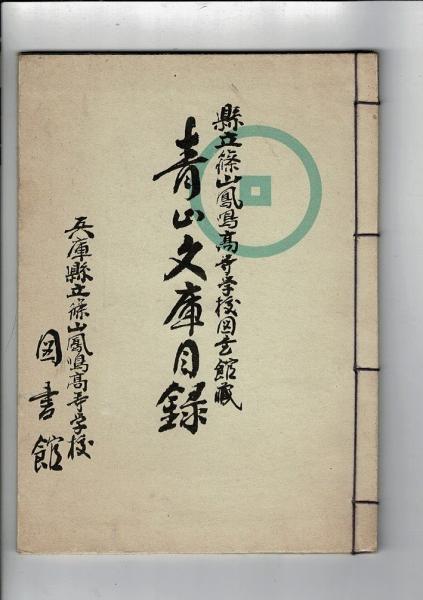 縣立篠山鳳鳴高等学校図書館蔵
青山文庫目録
兵庫縣立篠山鳳鳴高等学校
図書館